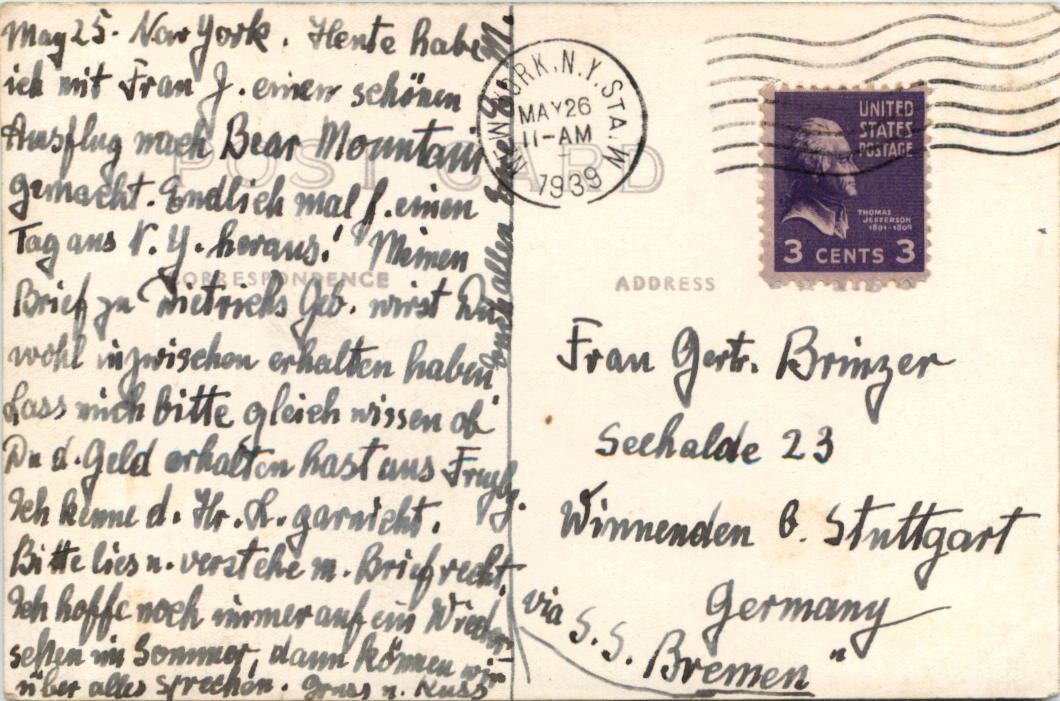 May 25. New York. Heute habe
ich mit Frau J. einen schönen
Ausflug nach Bear Mountain
gemacht. Endlich mal f. einen
Tag aus N.Y. heraus! Meinen
Brief zu Dietrichs Geb. wirst Du
wohl inzwischen erhalten haben
Lass mich bitte gleich wissen ob
Du d. Geld erhalten hast aus
Ich kenne d. Hr. L. garnicht.
Bitte lies u. verstehe m. Brief recht.
Ich hoffe noch immer auf ein Wieder-
sehen im Sommer, dann können wir
über alles sprechen. Gruss u. Kuss
allen
POST CARD
CORRESPONDENCE
ADDRESS
NEW YORK, N.Y. STA. W
MAY 26
11-AM
1939
UNITED
STATES
POSTAGE
THOMAS
JEFFERSON
1801-1809
3 CENTS 3
Frau Gertr. Brinzer
Seehalde 23
Winnenden b. Stuttgart
Germany
via S.S. Bremen"